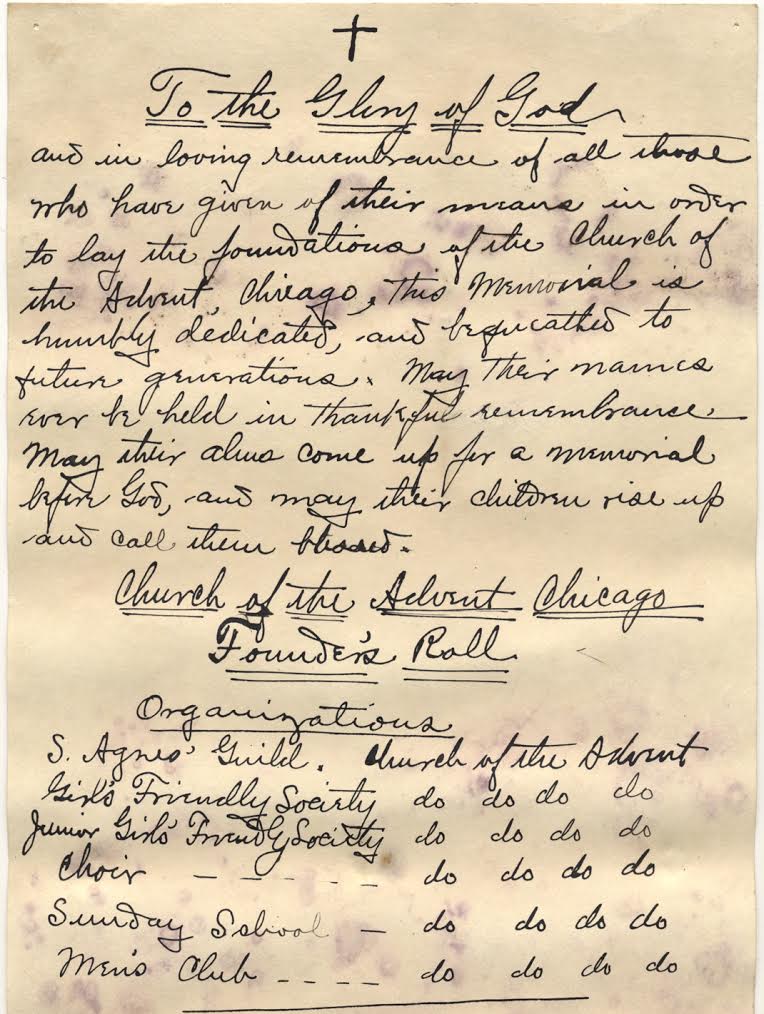 To the Glory of God
and in loving remembrance of all those
who have given of their means in order
to lay the foundations of the Church of
the Advent, Chicago, This Memorial is
humbly dedicated, and bequeathed to
future generations. May Their names
ever be held in thankful remembrance.
May their alms come up for a memorial
before God, and may their children rise up
and call them blessed.
Church of the Advent Chicago
Founder's Roll
Organizations
S. Agnes' Guild. Church of the Advent
Girl's Friendly Society do do do do
Junior Girls' Friendly Society do do do do
Choir - - - - - do do do do
Sunday School - do do do do
Men's Club - - - - do do do do